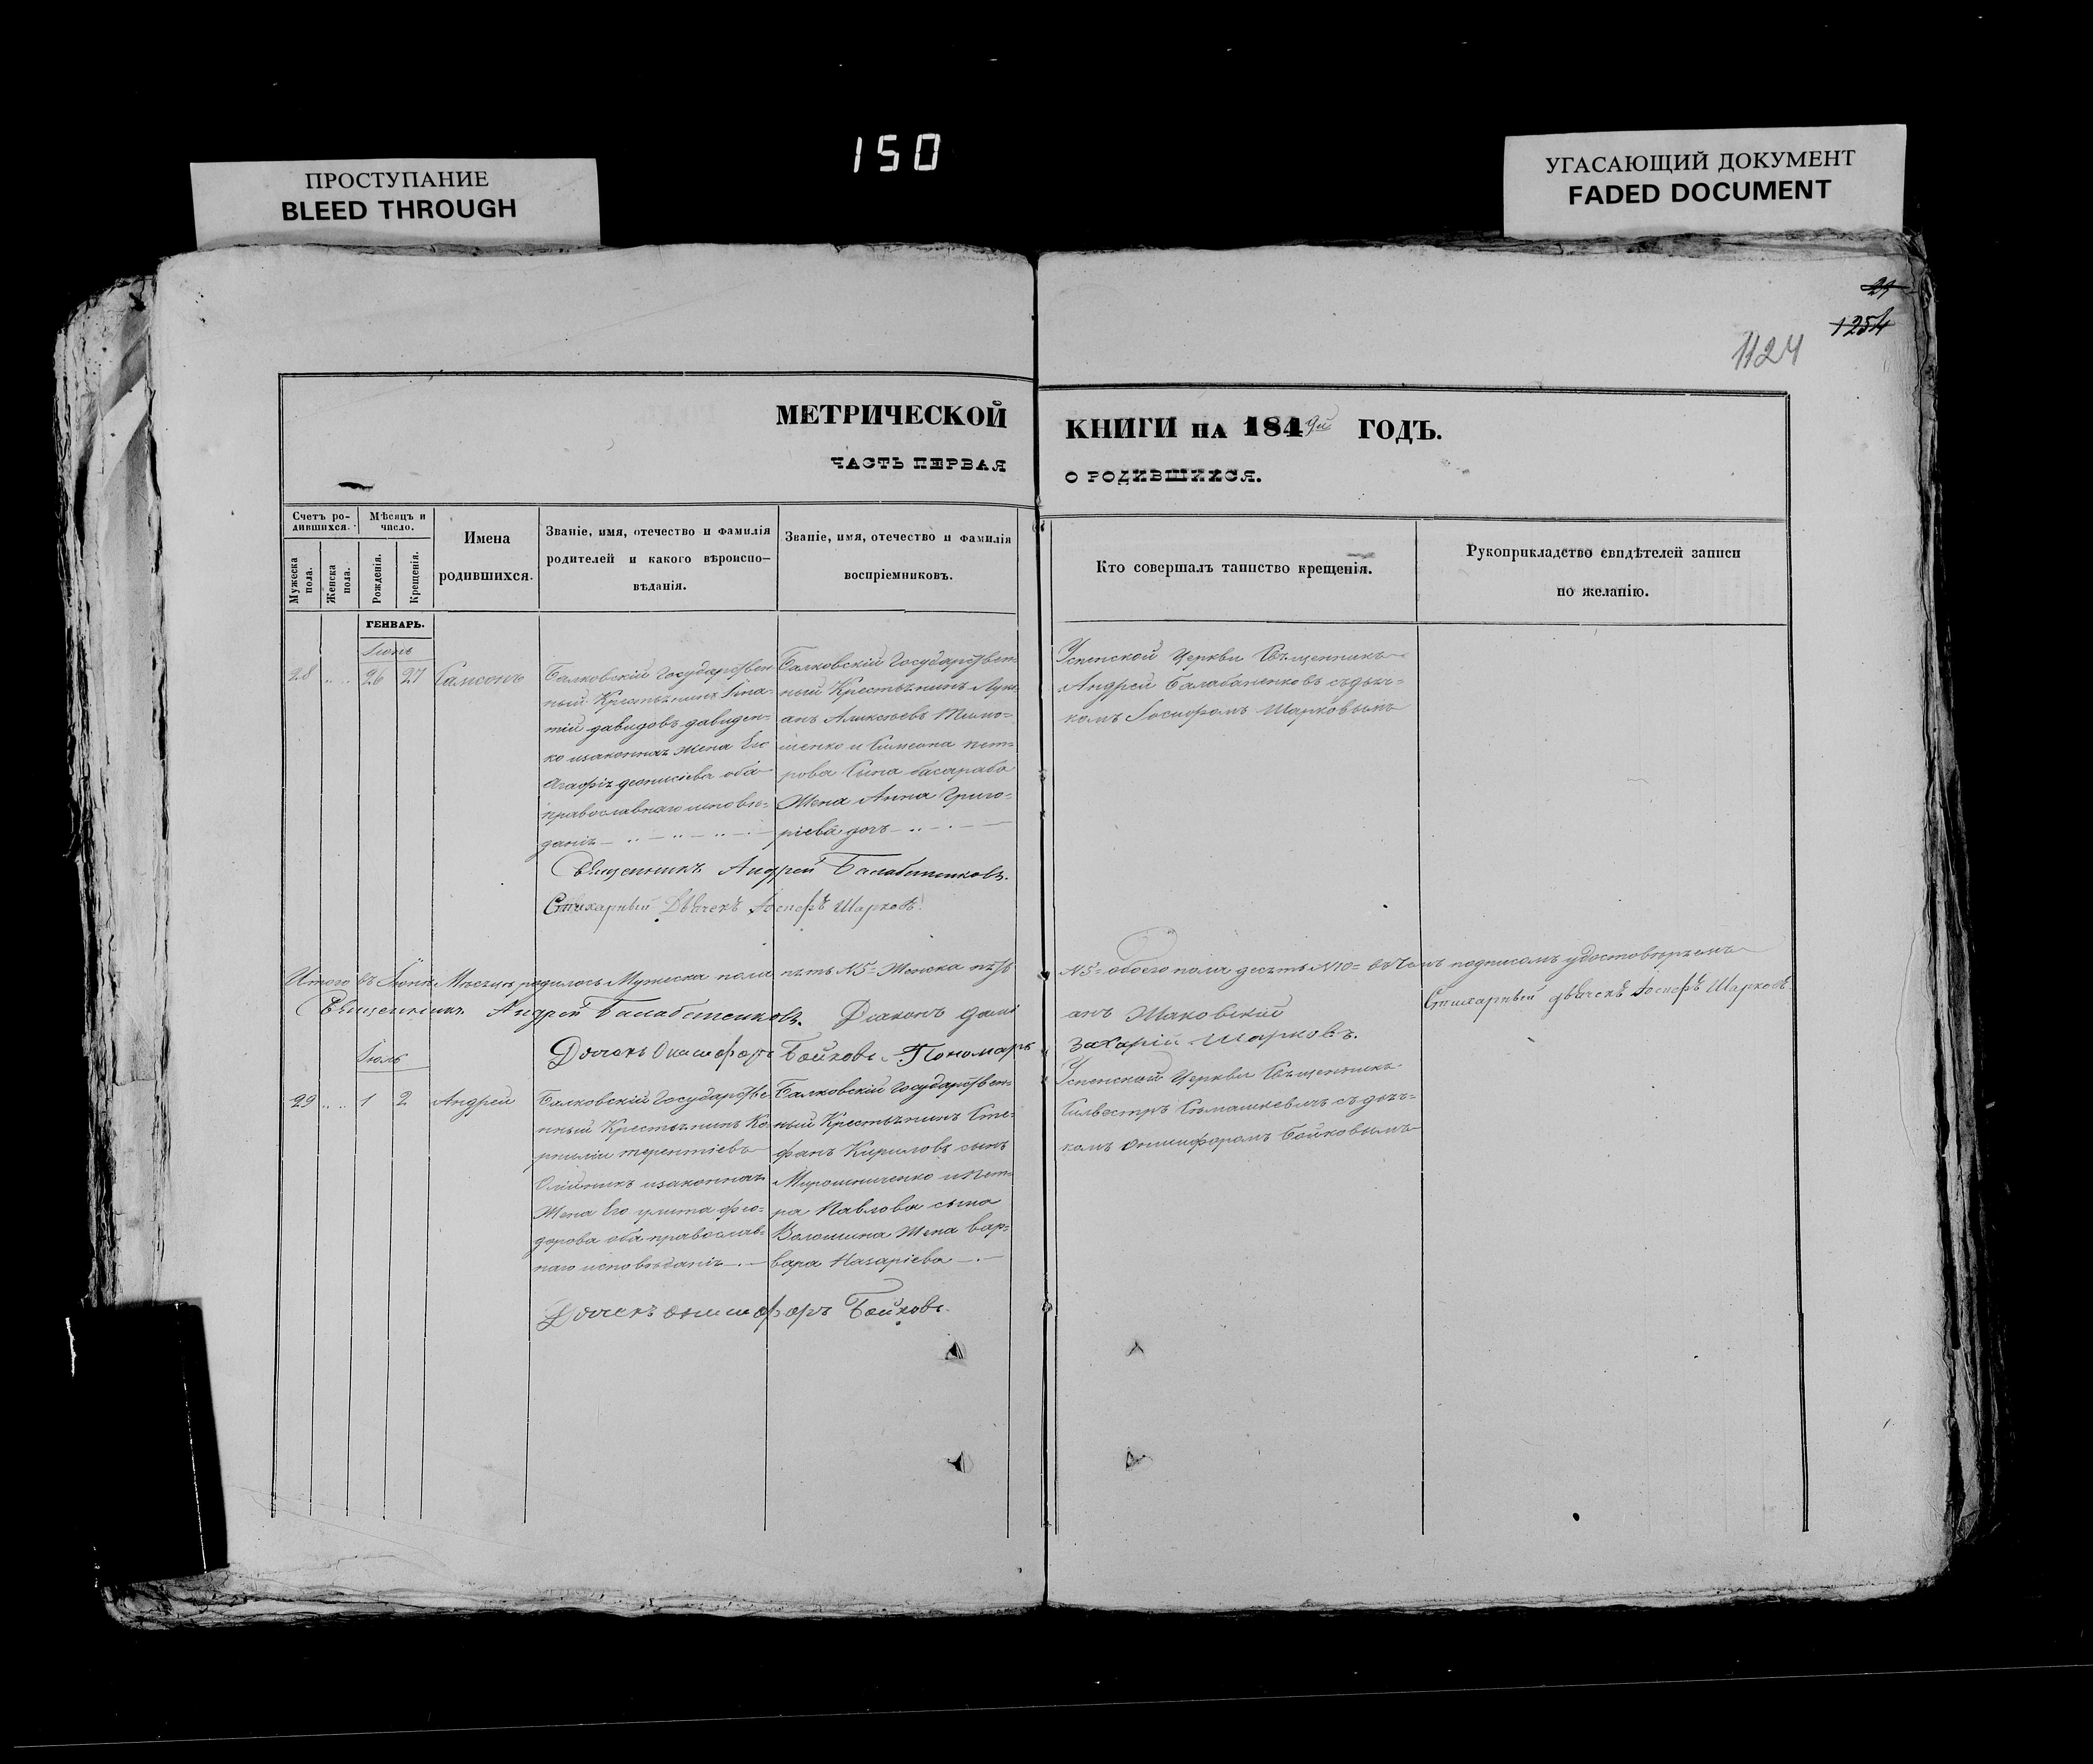 150
ПРОСТУПАНИЕ
BLEED THROUGH
УГАСАЮЩИЙ ДОКУМЕНТ
FADED DOCUMENT
1254
1124
МЕТРИЧЕСКОЙ
ЧАСТЬ ПЕРВАЯ
КНИГИ НА 1849й ГОДЪ.
О РОДИВШИХСЯ.
Счетъ ро-
дившихся.
Мѣсяцъ и
число.
Мужеска пола.
Женска пола.
Рожденія.
Крещенія.
Имена
родившихся.
Званіе, имя, отечество и фамилія
родителей и какого вѣроиспо-
вѣданія.
Званіе, имя, отечество и фамилія
воспріемниковъ.
Кто совершалъ таинство крещенія.
Рукоприкладство свидѣтелей записи
по желанію.
ГЕНВАРЬ.
Іюнь
28 26 27 Самсонъ
Балковскій Государствен
ный Крестьянинъ
тій давидовъ давиден-
ко изаконная жена Его
Агафія деонисіева оба
православнаго исповѣ-
данія
Балковскій Государствен
ный Крестьянинъ Луки
анъ Алексѣевъ Тимо-
шенко и Симеона пет-
рова Сына басараба
Жена Анна Григо-
ріева дочь
Успенской Церкви Священникъ
Андрей Балабаненковъ съдьяч-
комъ Іосифомъ Шарковымъ
Священникъ Андрей Балабаненковъ.
Стихарный Дьячекъ Іосифъ Шарковъ.
Итого въ Іюнѣ Мѣсяцѣ родилось Мужеска пола пять N5= Женска пять
N5= обоего пола десять N10= въ чемъ подписомъ удостовѣряемъ
Священникъ Андрей Балабаненковъ. Діаконъ Дамі
анъ Маковскій
Стихарный дьячекъ Іосифъ Шарковъ.
Дьячекъ Онисифоръ Бойковъ. Пономарь
Захарій Шарковъ.
Іюль
29 1 2 Андрей
Балковскій Государстве
нный Крестьянинъ Ко
рнилій терентіевъ
Олійникъ изаконная
Жена Его улита фео-
дорова оба православ-
наго исповѣданія
Балковскій Государствен-
ный Крестьянинъ Сте-
фанъ Кириловъ сынъ
Мирошниченко и Пет-
ра Павлова сына
Волошина Жена Вар-
вара Назаріева
Успенской Церкви Священникъ
Силвестръ Семашкевичъ съ дьяч-
комъ Онисифоромъ Бойковымъ
Дьячекъ Онисифоръ Бойковъ.